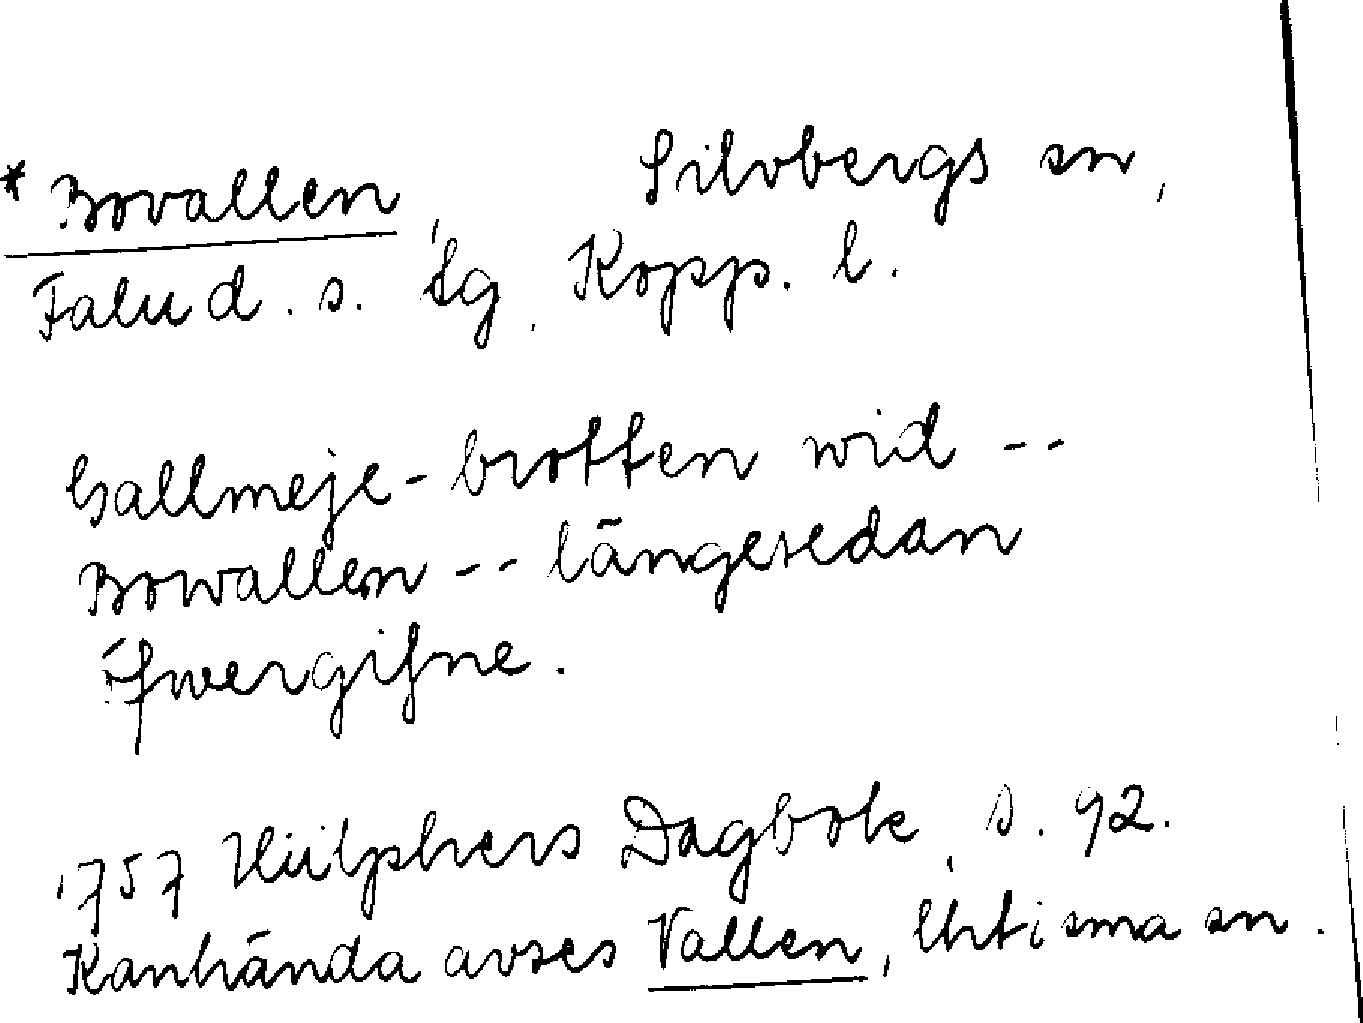 * Bovallen, Silvbergs sn,
Falu d. s. tg, Kopp. l.
Gallmeje-brotten wid --
Bowallen -- längesedan
öfwergifne.
1757 Hülphers Dagbok, s. 92.
Kanhända avses Vallen, sn.